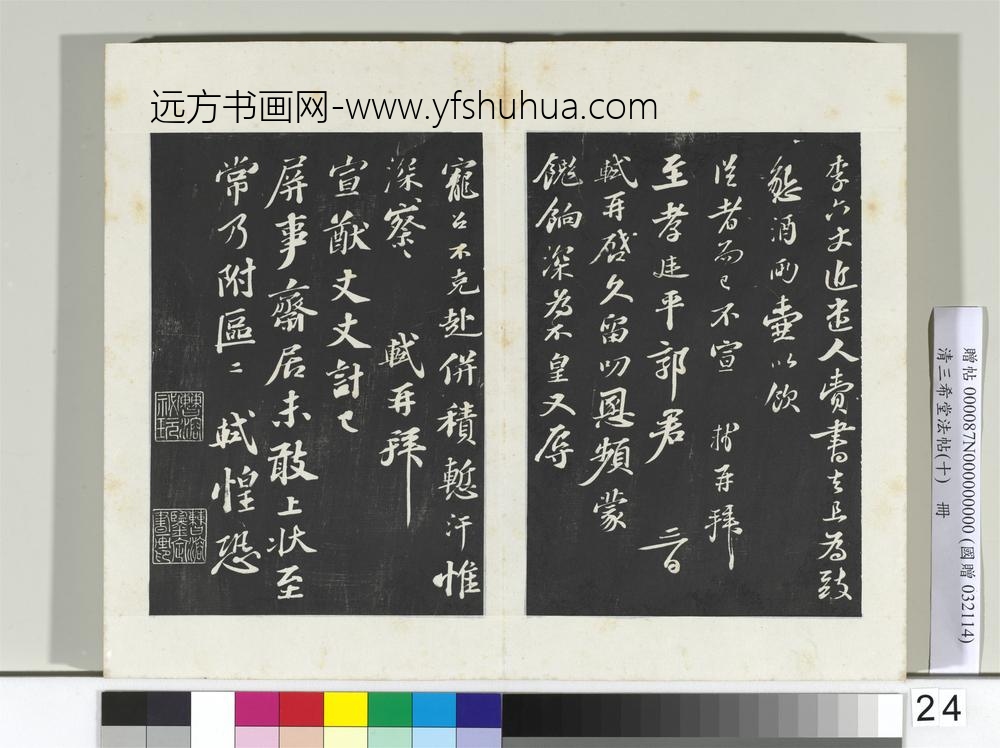 远方书画网-www.yfshuhua.com
李六丈近遣人賫書去且為致
懇酒兩壺以飲
從者而已不宣 軾再拜
至孝廷平郭君 三日
軾再啓久留叨恩頻蒙
餽餉深為不皇又辱
寵召不克赴併積慙汗惟
深察〻 軾再拜
宣猷丈丈計已
屏事齋居未敢上狀至
常乃附區〻軾惶恐
贈帖 000087N000000000 (國贈 032114)
清三希堂法帖(十) 冊
24